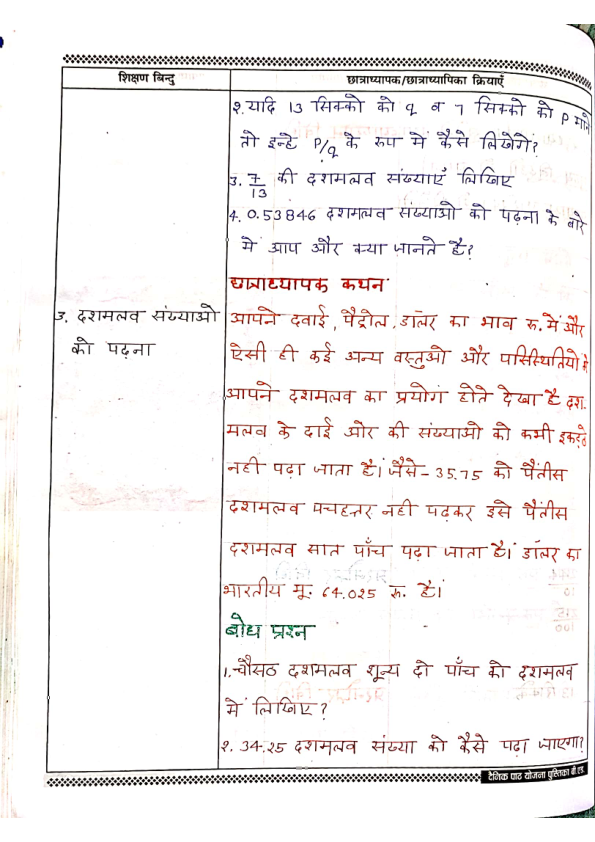 शिक्षण बिन्दु
छात्राध्यापक/छात्राध्यापिका क्रियाएँ
२. यदि 13 सिक्को को q व 7 सिक्को को P माने
तो इन्हे P/q के रुप में कैसे लिखेगें?
3. 7/13 की दशमलव संख्याएँ लिखिए
4. 0.53846 दशमलव संख्याओ को पढ़ना के बारे
में आप और क्या जानते है?
छात्राध्यापक कथन
3. दशमलव संख्याओ
को पढ़ना
आपने दवाई, पैट्रोल, डॉलर का भाव रु. में और
ऐसी ही कई अन्य वस्तुओ और परिस्थितियो मे
आपने दशमलव का प्रयोग होते देखा है दश-
मलव के दाई ओर की संख्याओ को कभी इकट्ठे
नही पढ़ा जाता है। जैसे- 35.75 को पैंतीस
दशमलव पचहत्तर नही पढ़कर इसे पैंतीस
दशमलव सात पाँच पढ़ा जाता है। डॉलर का
भारतीय मू. 64.025 रु. है।
बोध प्रश्न
1. चौसठ दशमलव शून्य दो पाँच को दशमलव
में लिखिए?
२. 34.25 दशमलव संख्या को कैसे पढ़ा जाएगा?
दैनिक पाठ योजना पुस्तिका बी.एड.